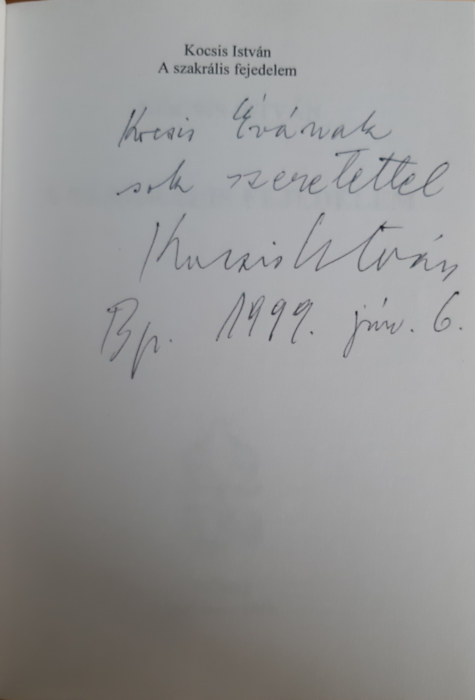 Kocsis István
A szakrális fejedelem
Kocsis Évának
sok szeretettel
Kocsis István
Bp. 1999. jún. 6.